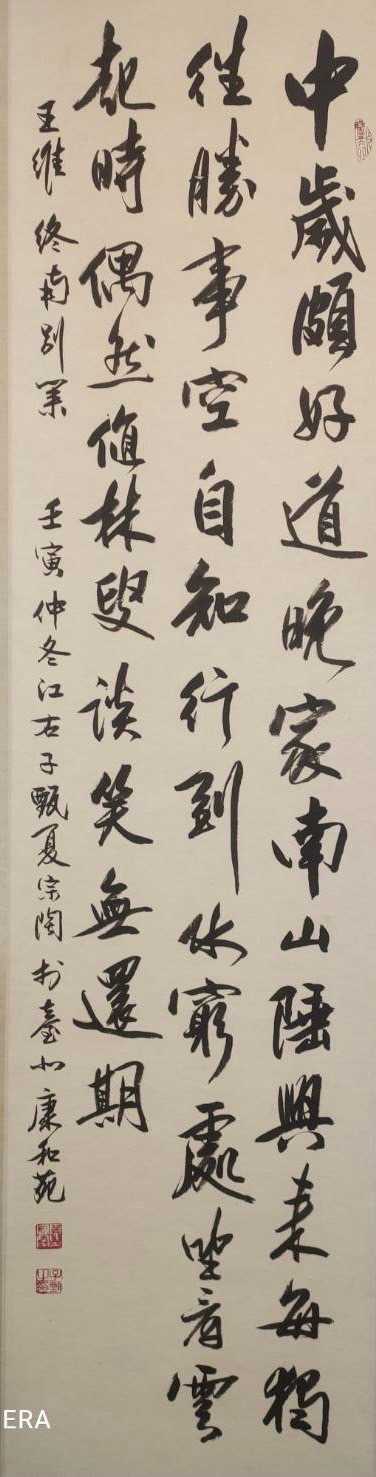 中歲頗好道晚家南山陲興来每獨
往勝事空自知行到水窮處坐看雲
起時偶然值林叟談笑無還期
王維終南別業 壬寅仲冬江右子甄夏宗陶於臺北康和苑
ERA